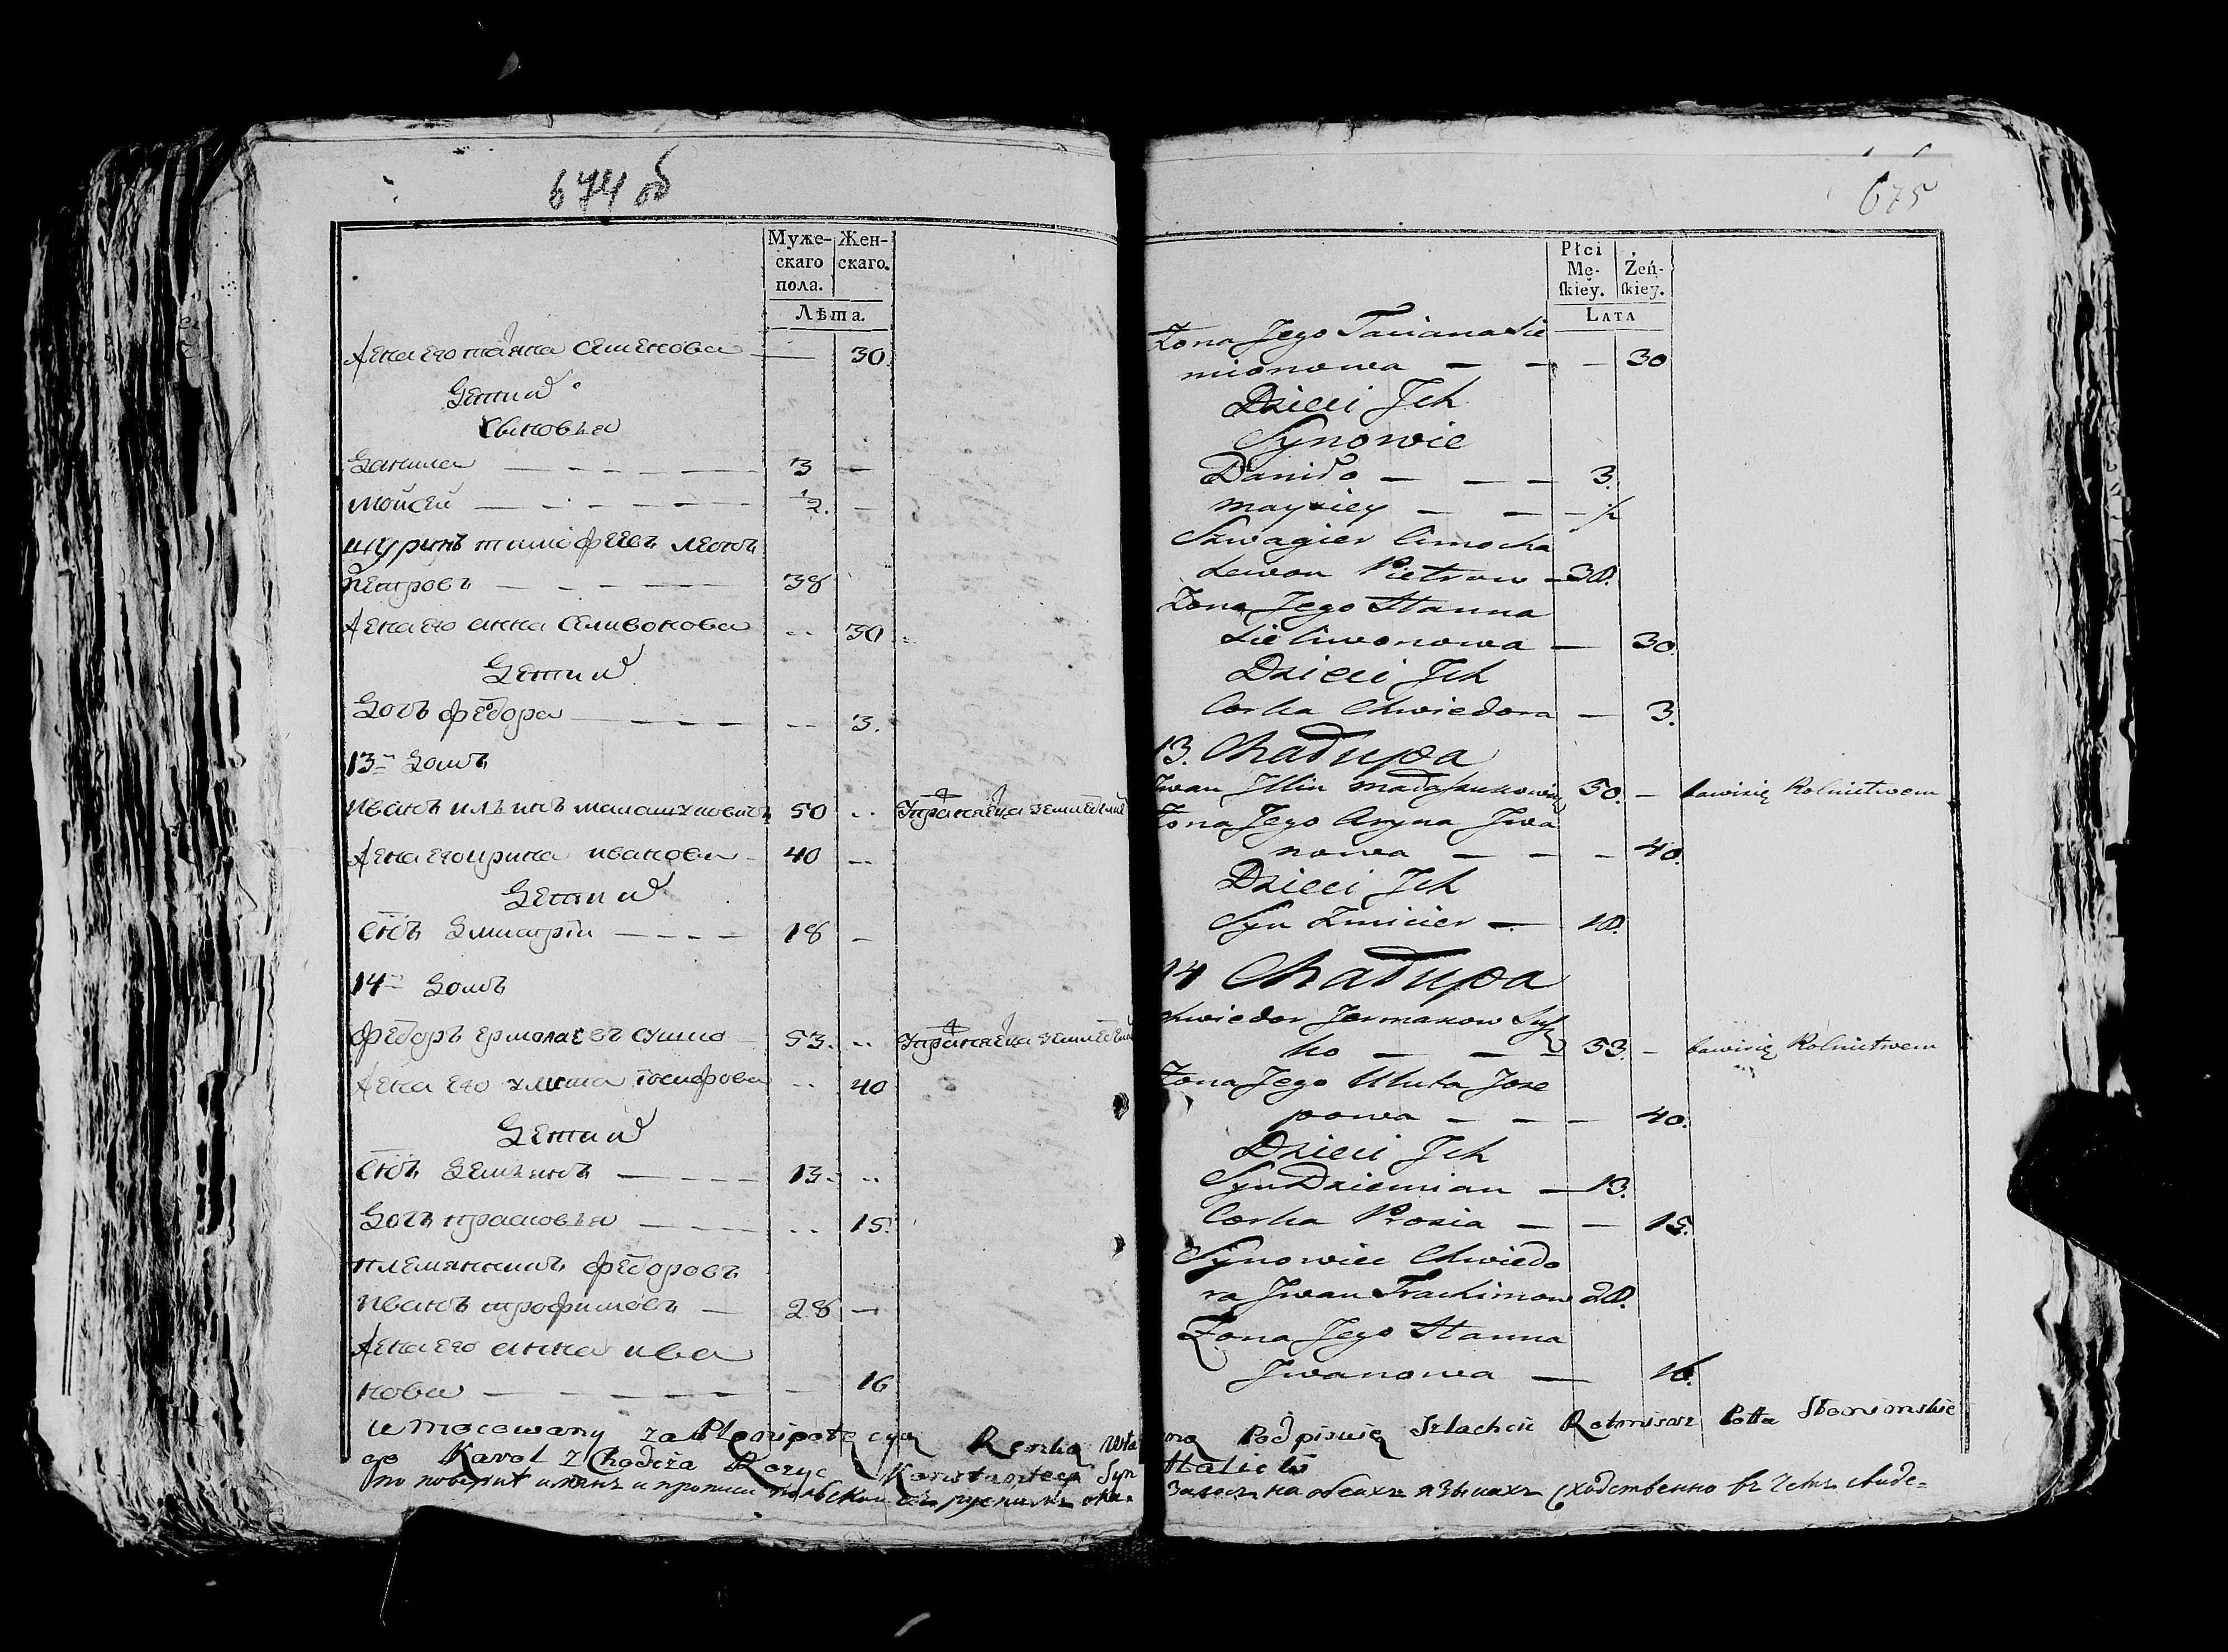 674 об
Муже-
скаго
пола.
Жен-
скаго.
Лѣта.
Жена его татяна Семенова — 30.
Дети
Сыновья
Данила — 3 —
Мойсей — ½. —
шуринъ тимофеевъ леонъ
Петровъ — 38
Жена его анна Селивонова .. 30
Дети
Дочь федора — .. 3.
13й Домъ
Иванъ ильинъ малашуковичъ 50 .. Упражняеца земледелие
Жена его ирина иванова 40 ..
Дети
Сынъ Дмитрій — 18 —
14й Домъ
Федоръ ермолаевъ сушко 53. .. Упражняеца земледелие
Жена его улита іосифова .. 40
Дети
Сынъ Демьянъ — 13. ..
Дочь прасковья — .. 15.
племянникъ федоровъ
Иванъ трофимовъ — 28 —
Жена его анна ива
нова — 16
675
Płci
Mę-
skiey.
Żeń-
skiey.
Lata
Żona Jego Taciana Sie
mionowa — — — 30
Dzieci Jch
Synowie
Daniło — — — 3.
Mayxiey — — — ½
Szwagier Cimocha
Lewon Pietrow — 38.
Żona Jego Hanna
Sieliwonowa — 30.
Dzieci Jch
Corka Chwiedora — 3.
13. Chałupa
Jwan Jllin Małaszukowicz 50. — bawisię Rolnictwem
Żona Jego Aryna Jwa
nowa — — — 40.
Dzieci Jch
Syn Zmicier — 18.
14 Chałupa
Chwiedor Jermakow Susz
ko — — — 53. — bawisię Rolnictwem
Żona Jego Uluta Joze
powa — — — 40.
Dzieci Jch
Syn Dziemian — 13.
Corka Prosia — — 15.
Synowiec Chwiedo
ra Jwan Trachimow 28.
Żona Jego Hanna
Jwanowa — 16.
Umocowany za Plenipotęcyą Renką włas ną Podpisuię Szlachcic Rotmistrz Pottu Słonimskie
go Karol z Chodcza Rozyc Konstantego Syn Halicki
По поверки имянъ и прописи польской съ рускимъ ока- залось на обеахъ языкахъ сходственно въ чемъ свиде-